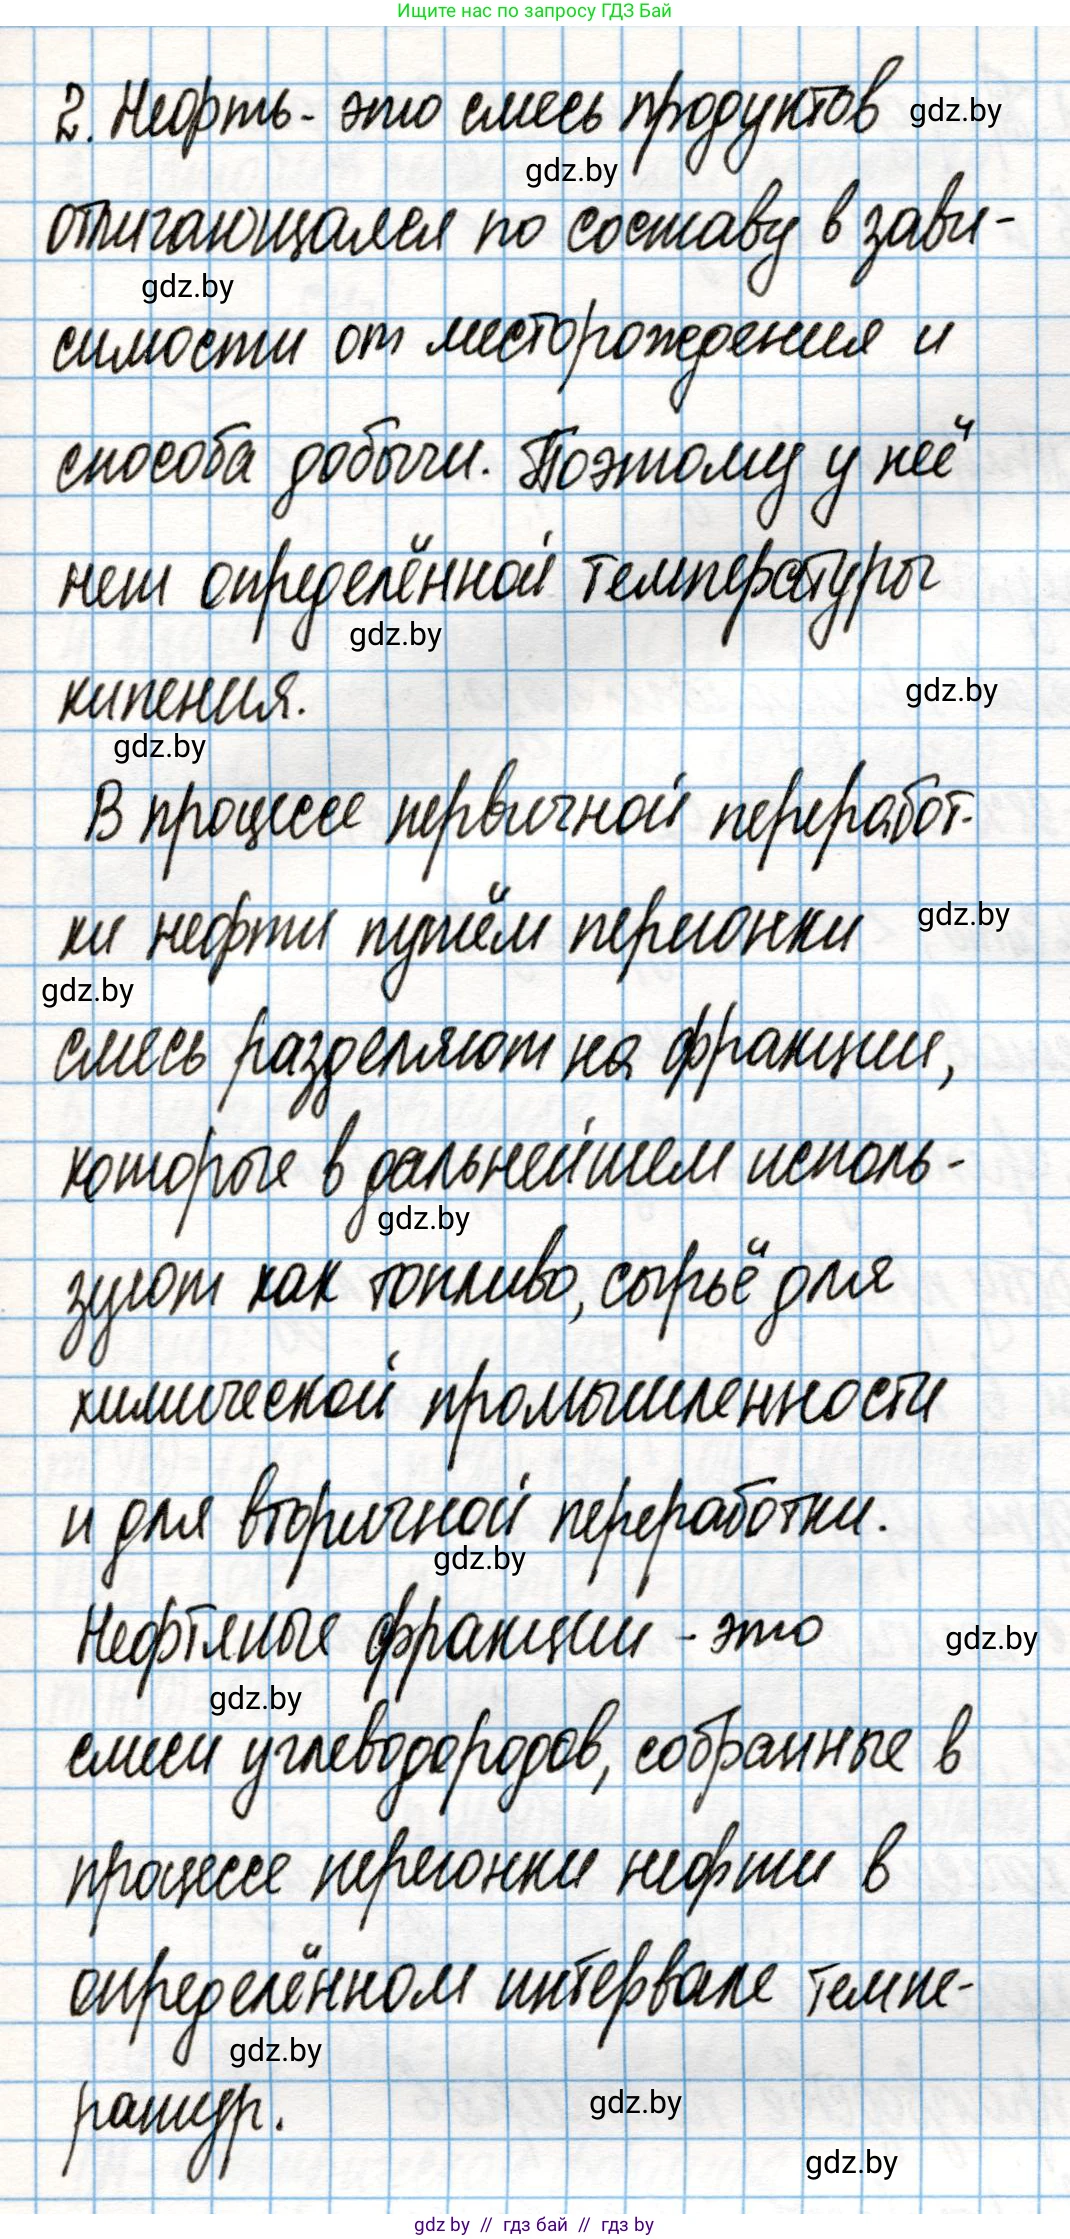 Ищите нас по запросу ГДЗ Бай
2. Нефть - это смесь продуктов gdz.by
gdz.by
отличающаяся по составу в зави-
gdz.by
симости от месторождения и
способа добычи. Поэтому у неё
нет определённой температуры
gdz.by
кипения. gdz.by
gdz.by
В процессе первичной переработ-
ки нефти путём перегонки gdz.by
gdz.by
смесь разделяют на фракции,
которые в дальнейшем исполь-
gdz.by
зуют как топливо, сырьё для
химической промышленности
и для вторичной переработки.
gdz.by
Нефтяные фракции - это gdz.by
gdz.by
смеси углеводородов, собранные в
процессе перегонки нефти в
определённом интервале темпе-
gdz.by
ратур. gdz.by
gdz.by
gdz by // гдз бай // гдз by